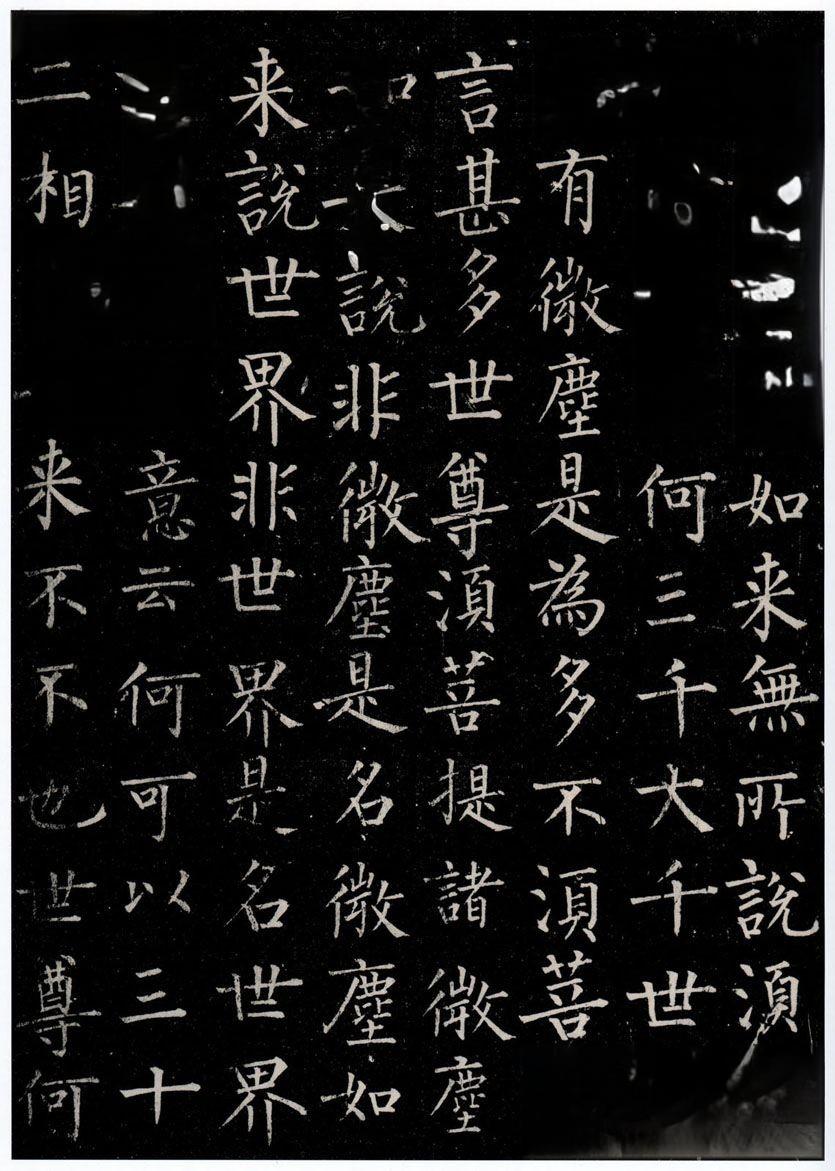 如来無所說湏
何三千大千世
有微塵是為多不湏菩
言甚多世尊湏菩提諸微塵
說非微塵是名微塵如
来說世界非世界是名世界
意云何可以三十
二相来不不也世尊何